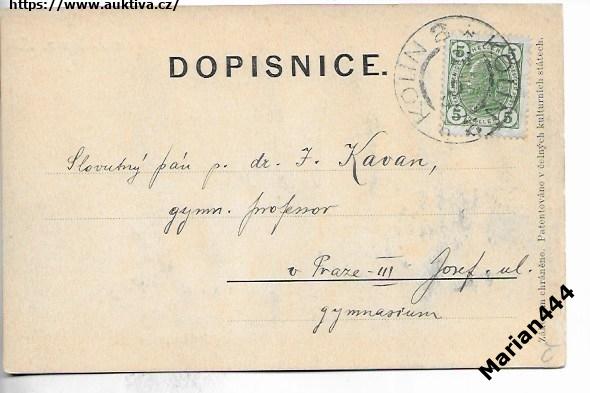 https://www.auktiva.cz/
DOPISNICE.
KOLÍN
KOLÍN
5 HELLER 5
5 5
Slovutný pán p. dr. J. Kavan,
gymn. professor
v Praze-III Josef. ul.
gymnasium
zákonem chráněno. Patentováno v čelných kulturních státech.
Marian444